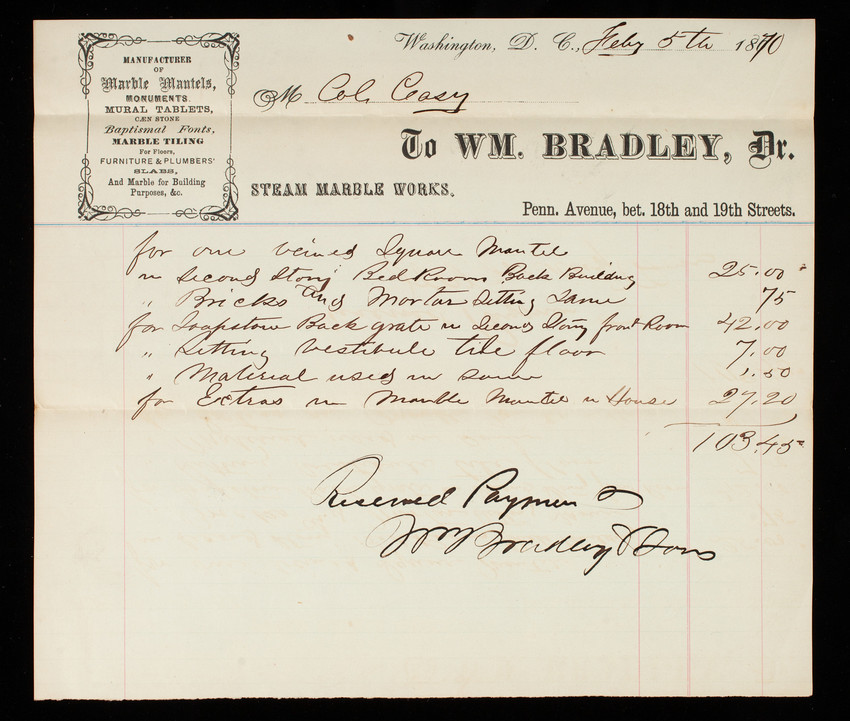 MANUFACTURER
OF
Marble Mantels,
MONUMENTS.
MURAL TABLETS,
CÆN STONE
Baptismal Fonts,
MARBLE TILING
For Floors,
FURNITURE & PLUMBERS'
SLABS,
And Marble for Building
Purposes, &c.
Washington, D. C., Feby 5th 1870
M Col. Casey
To WM. BRADLEY, Dr.
STEAM MARBLE WORKS.
Penn. Avenue, bet. 18th and 19th Streets.
for one veined Square Mantel
in Second Story Bed Room Back Building 25.00
" Bricks and Mortar Setting Same 75
for Soapstone Back grate in Second Story front Room 42.00
" Setting Vestibule tile floor 7.00
" Material used in same 1.50
for Extras in Marble Mantel in House 27.20
103.45
Received Payment
Wm Bradley & Sons